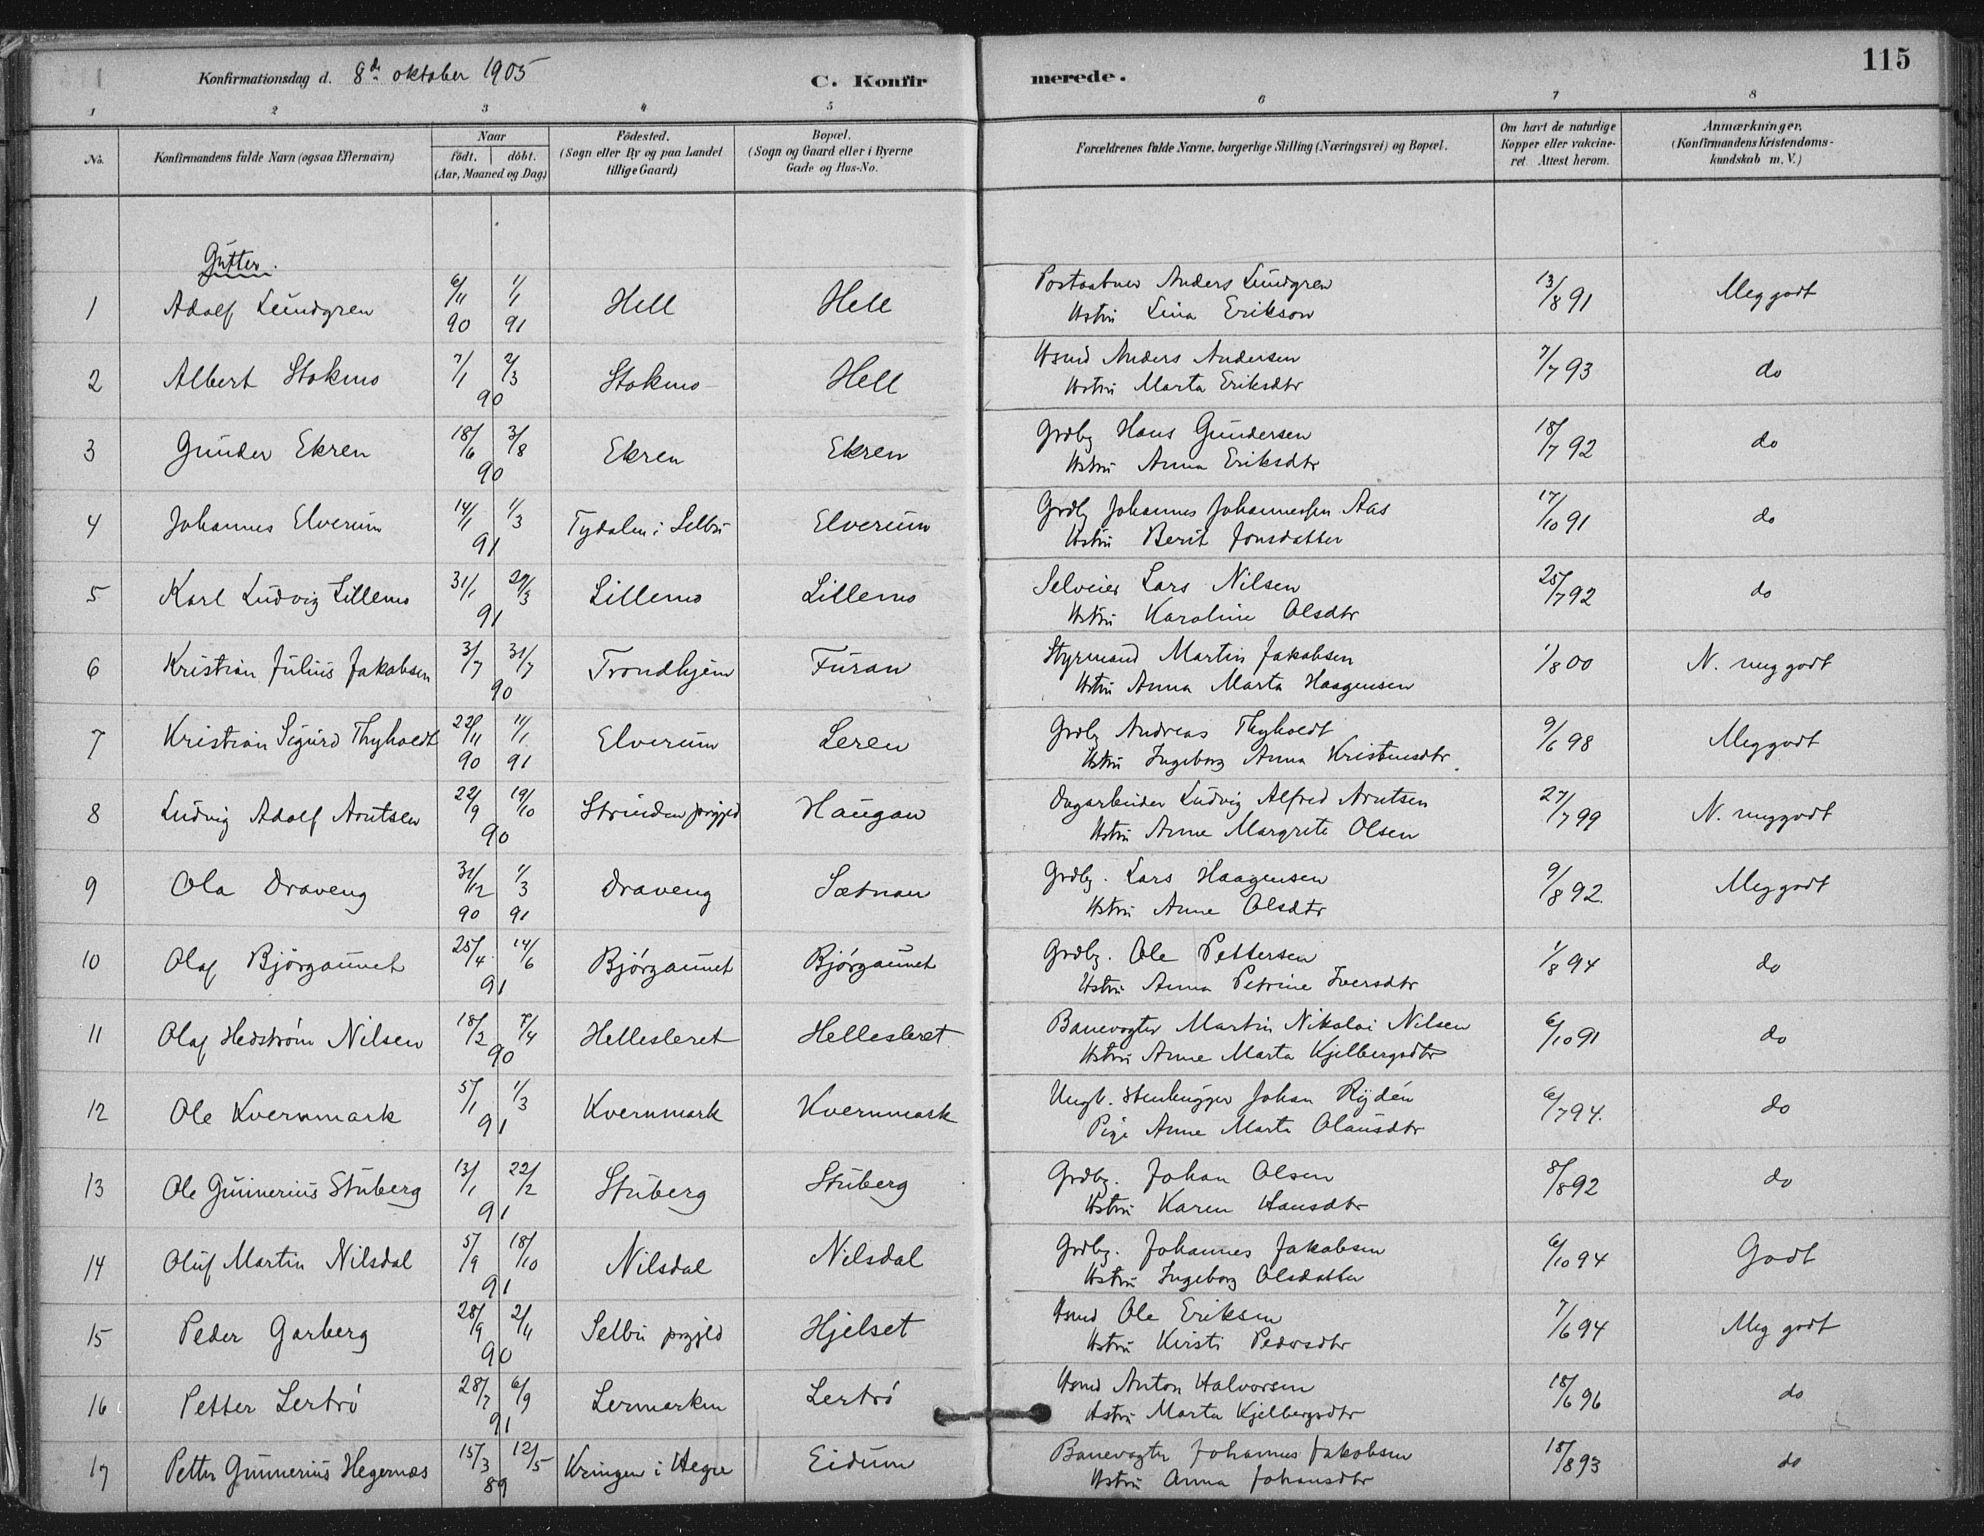 115
Konfirmationsdag d. 8de oktober 1905
C. Konfir merede.
1 2 3 4 5 6 7 8
No.
Konfirmandens fulde Navn (ogsaa Efternavn)
Naar
födt. döbt.
(Aar, Maaned og Dag)
Födested.
(Sogn eller By og paa Landet
tillige Gaard)
Bopæl.
(Sogn og Gaard eller i Byerne
Gade og Hus-No.
Forældrenes fulde Navne, borgerlige Stilling (Næringsvei) og Bopæl.
Om havt de naturlige
Kopper eller vakcine-
ret. Attest herom.
Anmærkninger.
(Konfirmandens Kristendoms-
kundskab m. V.)
Gutter.
1 Adolf Lundgren 6/11 90 1/1 91 Hell Hell Postaabner Anders Lundgren 13/8 91 Meg godt
Hstru Lina Erikson
2 Albert Stokmo 7/1 2/3 90 Stokmo Hell Hsmd Anders Andersen 7/7 93 do
Hstru Marta Eriksdtr
3 Gunder Ekren 18/6 3/8 90 Ekren Ekren Grdbg Hans Gundersen 18/7 92 do
Hstru Anna Eriksdtr
4 Johannes Elverum 14/1 1/3 91 Tydalen i Selbu Elverum Grdbg Johannes Johannessen Aas 17/10 91 do
Hstru Berit Jonsdatter
5 Karl Ludvig Lillemo 31/1 29/3 91 Lillemo Lillemo Selveier Lars Nilsen 25/7 92 do
Hstru Karoline Olsdtr
6 Kristian Julius Jakobsen 3/7 31/7 90 Trondhjem Furan Styrmand Martin Jakobsen 1/8 00 N. meg godt
Hstru Anna Marta Haagensen
7 Kristian Sigurd Thyholdt 22/11 90 11/1 91 Elverum Leren Grdbg Andreas Thyholdt 9/6 98 Meg godt
Hstru Ingeborg Anna Kristensdtr.
8 Ludvig Adolf Arntsen 22/9 19/10 90 Strinden prgjld Haugan Dagarbeider Ludvig Alfred Arntsen 27/7 99 N. meg godt
Hstru Anne Margrete Olsen
9 Ola Draveng 31/12 90 1/3 91 Draveng Sætnan Grdbg. Lars Haagensen 9/8 92. Meg godt
Hstru Anne Olsdtr
10 Olaf Bjørgaunet 25/4 14/6 91 Bjørgaunet Bjørgaunet Grdbg. Ole Pettersen 1/8 94 do
Hstru Anna Petrine Iversdtr
11 Olaf Hedstrøm Nilsen 18/2 7/4 90 Hellesleret Hellesleret Banevogter Martin Nikolai Nilsen 6/10 91 do
Hstru Anne Marta Kjelbergsdtr
12 Ole Kvernmark 5/1 1/3 91 Kvernmark Kvernmark Ungk. Stenhugger Johan Rydén 6/7 94. do
Pige Anne Marta Olausdtr
13 Ole Gunnerius Stuberg 13/1 22/2 91 Stuberg Stuberg Grdbg. Johan Olsen 8/8 92 do
Hstru Karen Hansdtr
14 Oluf Martin Nilsdal 5/9 18/10 91 Nilsdal Nilsdal Grdbg. Johannes Jakobsen 6/10 94 Godt
Hstru Ingeborg Olsdatter
15 Peder Garberg 28/9 2/11 90 Selbu prgjld Hjelset Hsmd Ole Eriksen 7/6 94 Meg godt
Hstru Kirsti Pedersdtr
16 Petter Lertrø 28/7 6/9 91 Lermarken Lertrø Hsmd Anton Halvorsen 18/6 96 do
Hstru Marta Kjelbergsdtr
17 Petter Gunnerius Hegernæs 15/3 12/5 89 Kringen i Hegre Eidum Banevogter Johannes Jakobsen 18/8 93 do
Hstru Anna Johansdtr